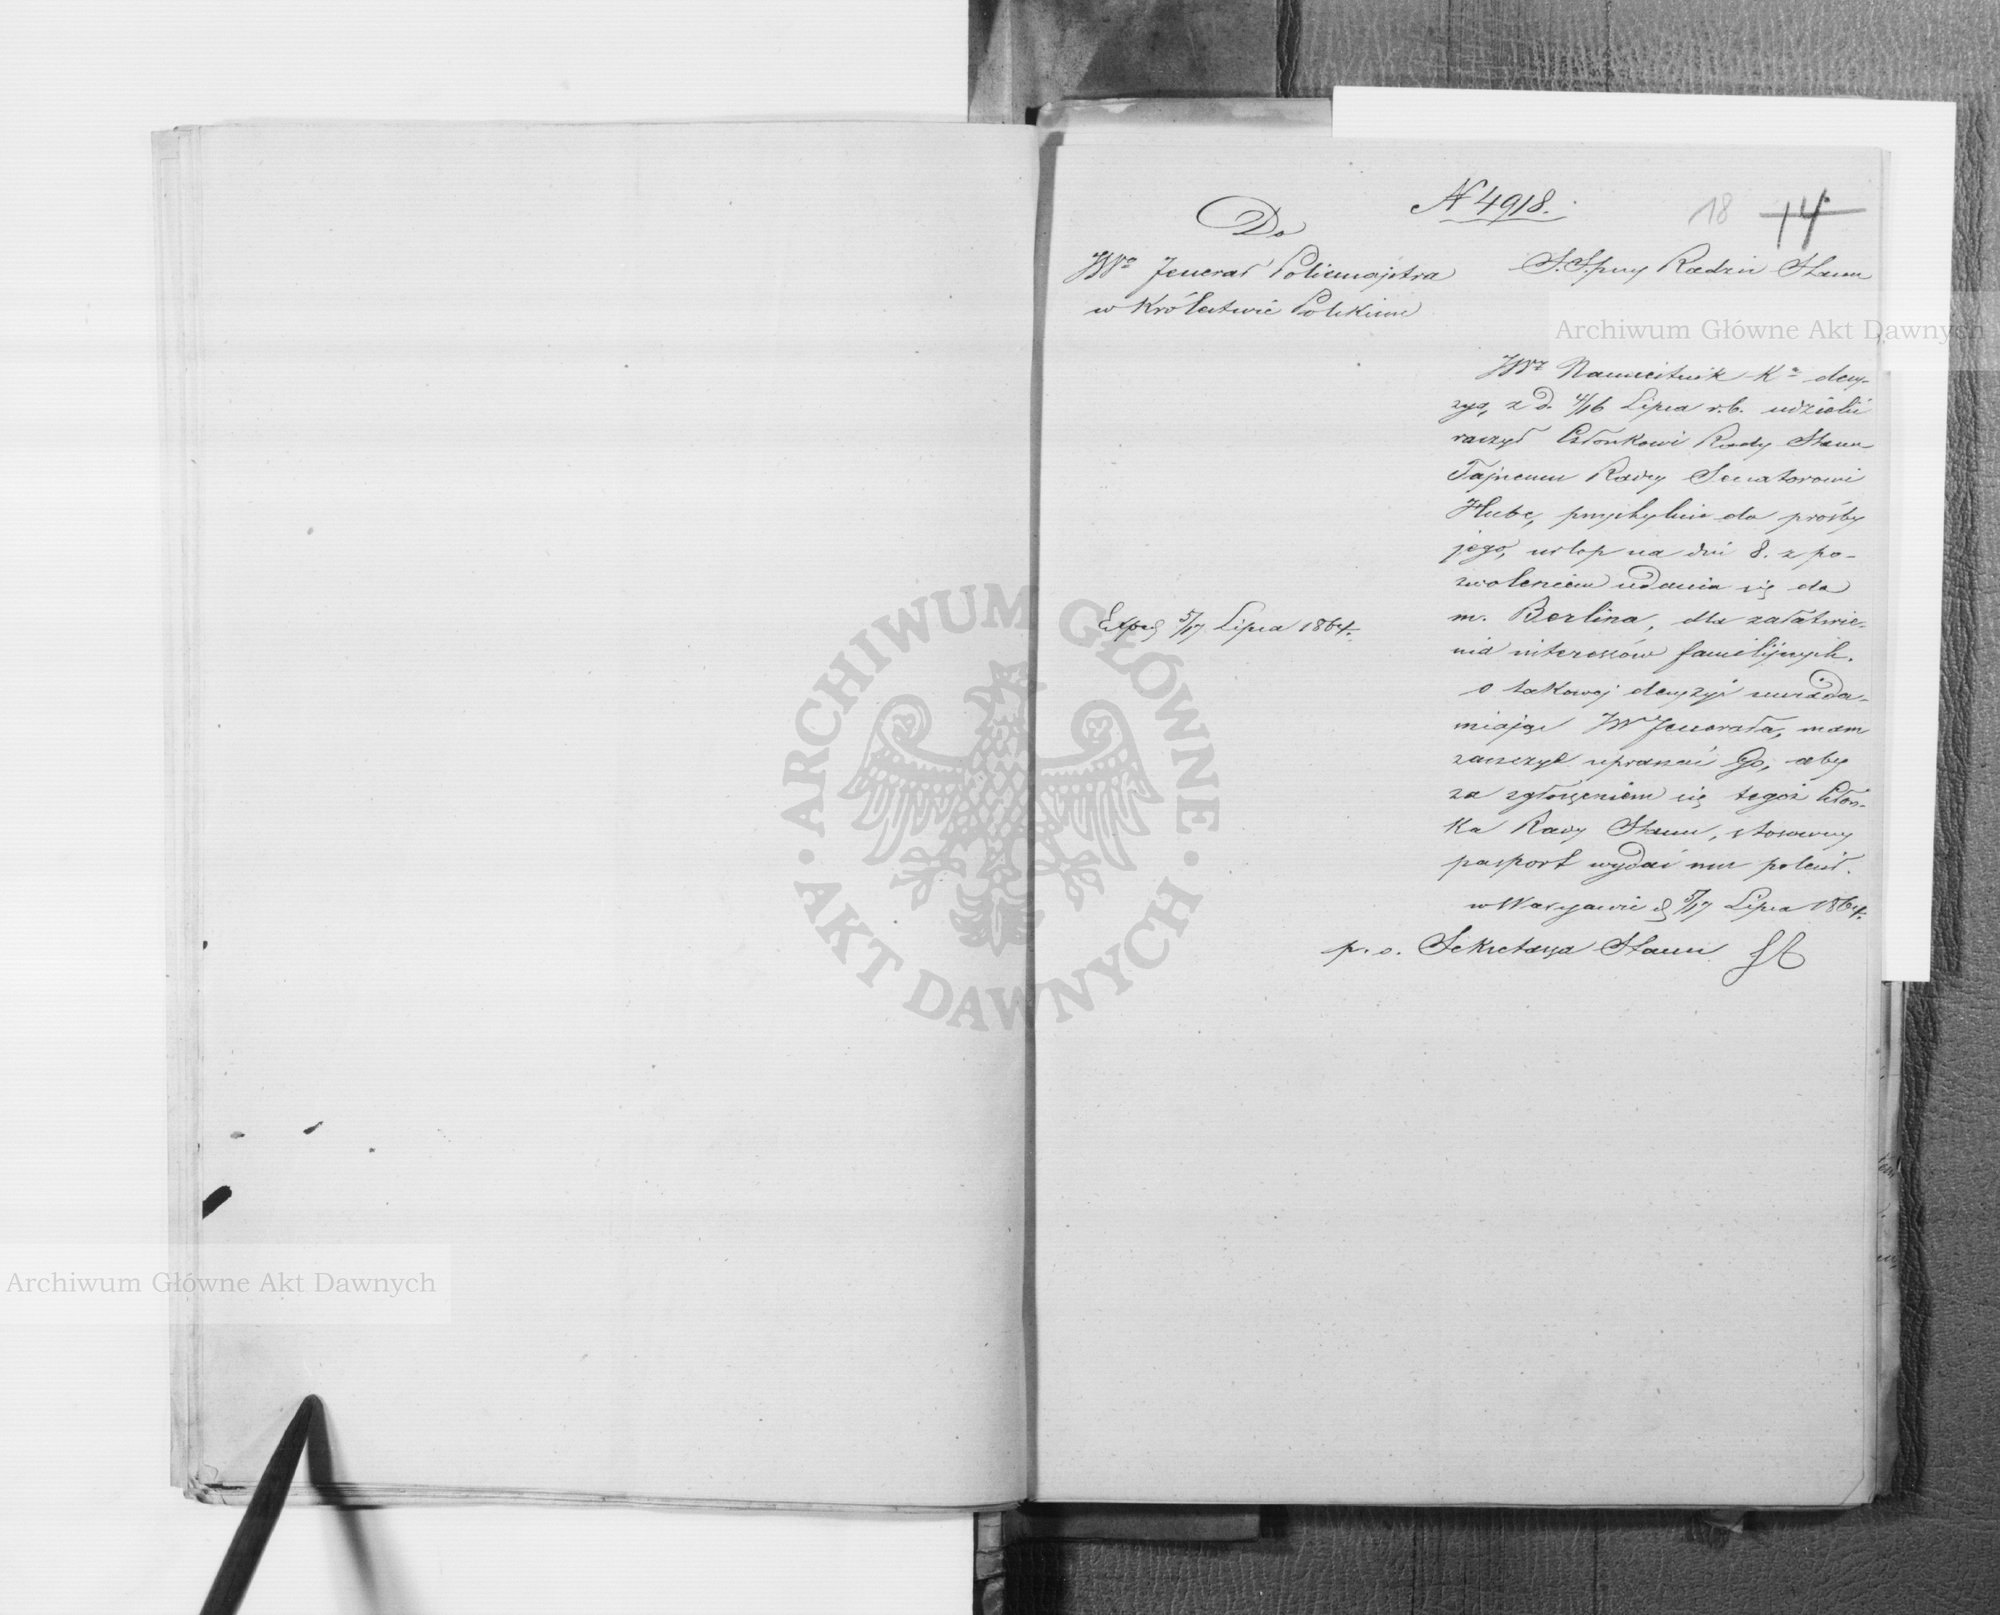 N 4918.
18 14
Do
JWo Jenerał Policmajstra
w Królestwie Polskiem
S. S. przy Radzie Stanu
JWny Namiestnik Ka decy-
zyą z d. 4/16 Lipca r. b. udzielić
raczył Członkowi Rady Stanu
Tajnemu Radcy Senatorowi
Hube, przychylnie do prośby
jego, urlop na dni 8. z po-
zwoleniem udania się do
m. Berlina, dla załatwie-
nia interessów familijnych.
O takowej decyzyi uwiada-
miając JWJenerała, mam
zaszczyt upraszać Go, aby
za zgłoszeniem się tegoż Człon-
ka Rady Stanu, stosowny
pasport wydać mu polecił.
w Warszawie d. 5/17 Lipca 1864.
p. o. Sekretarza Stanu
Exped 5/17 Lipca 1864.
Archiwum Główne Akt Dawnych
Archiwum Główne Akt Dawnych
ARCHIWUM GŁÓWNE
AKT DAWNYCH